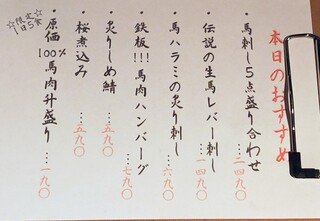 本日のおすすめ
・馬刺し5点盛り合わせ…二四九〇
・伝説の生馬レバー刺し…一四九〇
・馬ハラミの炙り刺し…六九〇
・鉄板!!!馬肉ハンバーグ…七九〇
・炙りしめ鯖…五九〇
・桜煮込み…五九〇
・原価100%馬肉升盛り…一九〇
☆限定☆
1日5食